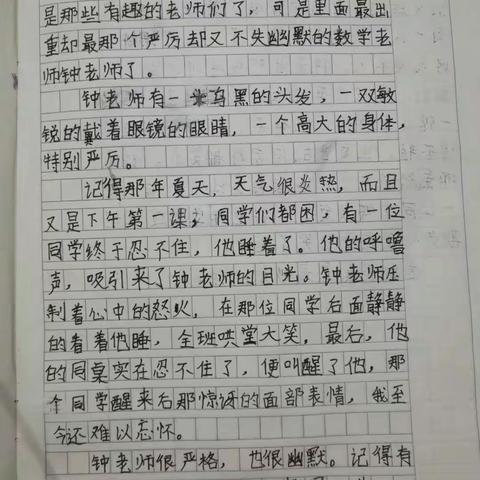 是那些有趣的老师们了，可是里面最出
重却最那个严厉却又不失幽默的数学老
师钟老师了。
钟老师有一米乌黑的头发，一双敏
锐的戴着眼镜的眼睛，一个高大的身体，
特别严厉。
记得那年夏天，天气很炎热，而且
又是下午第一课，同学们都困，有一位
同学终于忍不住，他睡着了。他的呼噜
声，吸引来了钟老师的目光。钟老师压
制着心中的怒火，在那位同学后面静静
的看着他睡，全班哄堂大笑。最后，他
的同桌实在忍不住了，便叫醒了他，那
个同学醒来后那惊讶的面部表情，我至
今还难以忘怀。
钟老师很严格，也很幽默。记得有